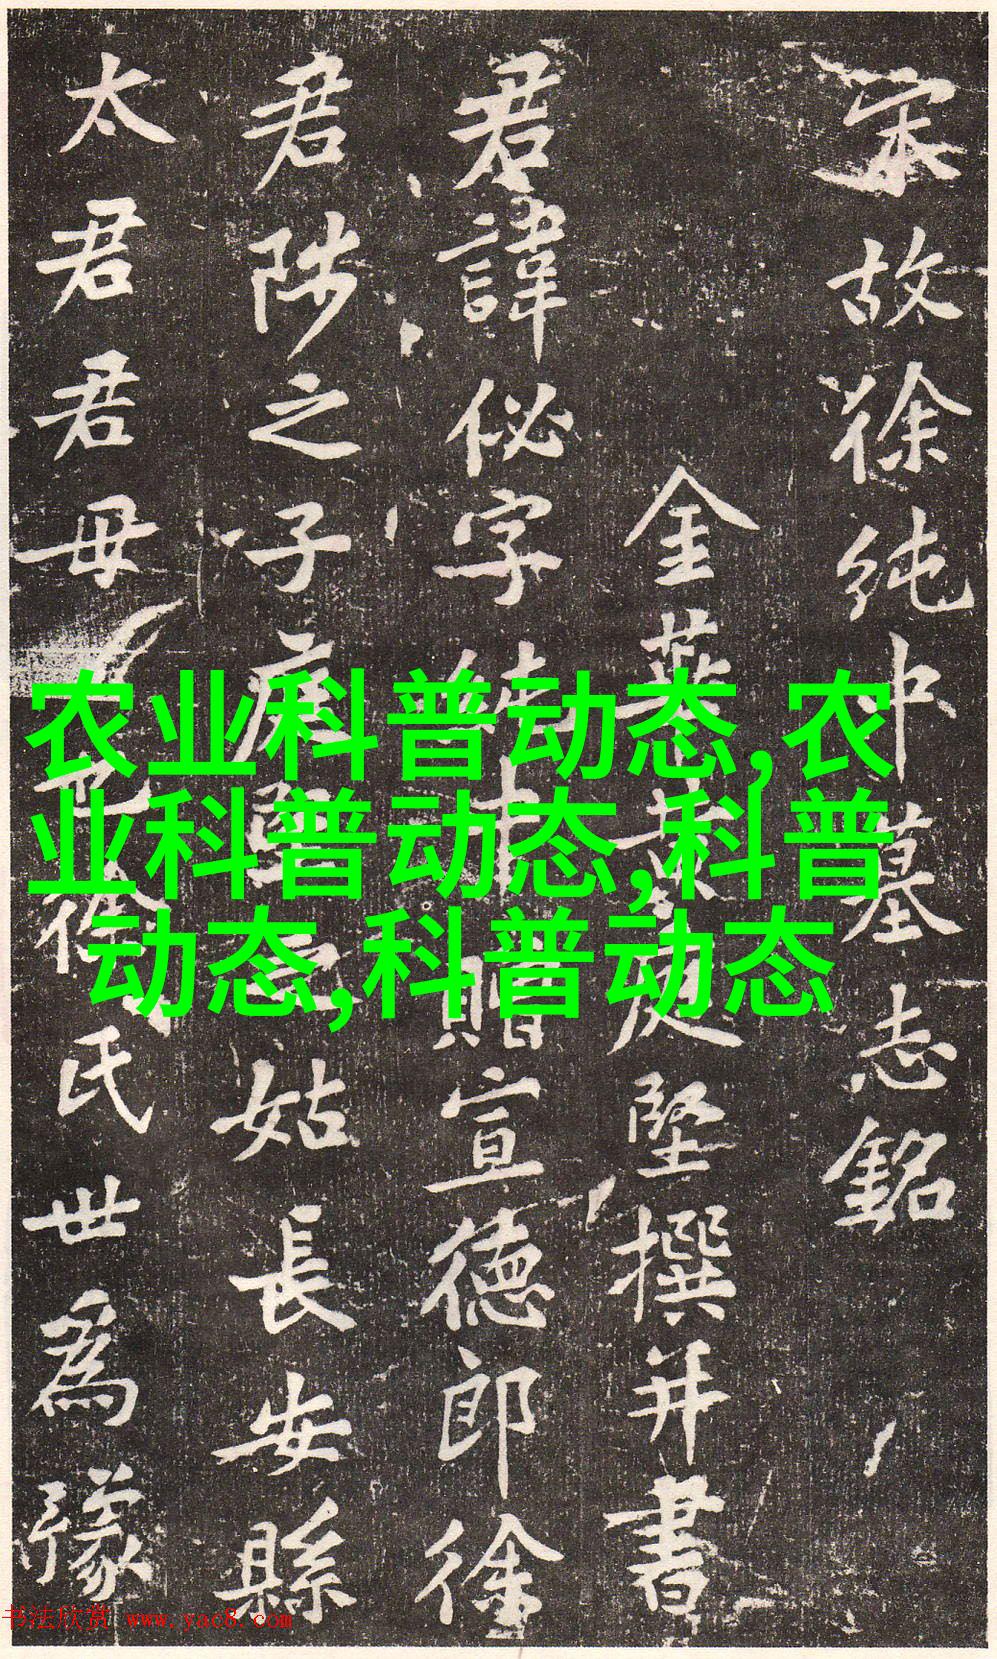 宋故徐纯中墓志銘
金華黄庭堅撰并書
君諱佖字純中贈宣德郎徐
君陟之子
姑長安縣
太君君母
徐氏世為豫
农业科普动态,农
业科普动态,科普
动态,科普动态
书法欣赏 www.yac8.com